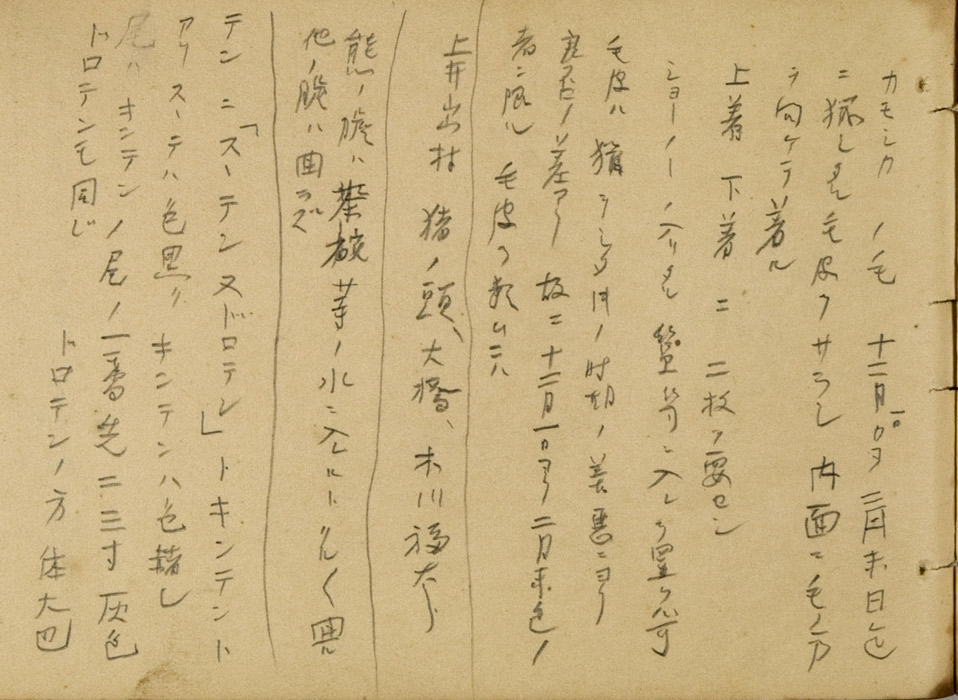 カモシカ ノ毛 十二月一日ヨリ 二月末日迄
ニ猟シタル毛皮ヲサラシ 内面ニ毛ノ方
ヲ向ケテ着ル
上着 下着 ニ 二枚ヲ要セシ
ショーノーノ入リタル 箪笥ニ入レヲ置ク可
毛皮ハ 猟ヲシタル時ノ時期ノ善悪ニヨリ
良否ノ差アリ 故ニ十二月一日ヨリ二月末迄ノ
者ニ限ル 毛皮ヲ頼ムニハ
上井出村 猪ノ頭、大橋、木川福太郎
熊ノ胆ハ 茶碗等ノ水ニ入レルトクルクル囲ル
他ノ胆ハ囲ラズ
テンニ「ステン又ドロテン」ト キンテント
アリ ステンハ色黒ク キンテンハ色赭シ
尾ハ キンテンノ尾ノ一番先二三寸灰色
ドロテンモ同ジ ドロテンノ方 体大也